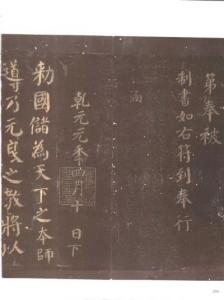 第奉被
制書如右符到奉行
涵
乾元元年四月十日下
勅國儲為天下之本師
導乃元良之教將以